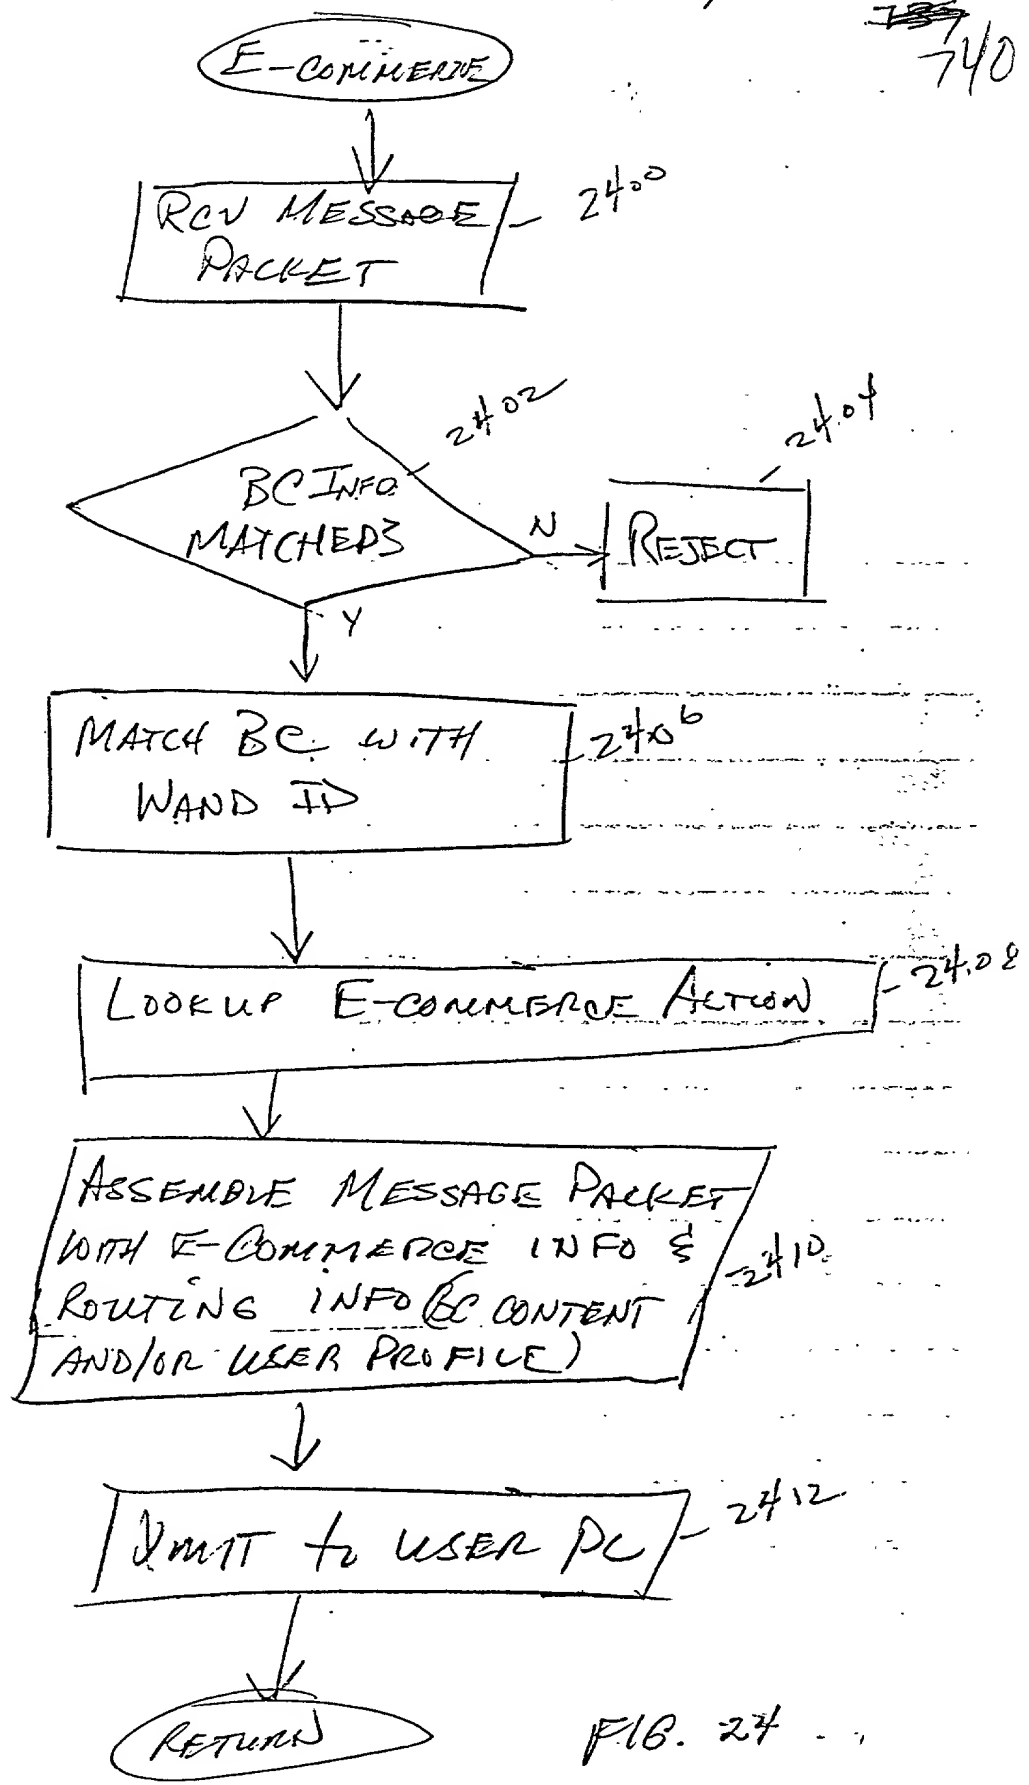 740
E-COMMERCE
RCV MESSAGE
PACKET
2400
2402
BC INFO
MATCHED?
N
Y
2404
REJECT
MATCH BC WITH
WAND ID
2406
LOOKUP E-COMMERCE ACTION
2408
ASSEMBLE MESSAGE PACKET
WITH E-COMMERCE INFO &
ROUTING INFO (BC CONTENT
AND/OR USER PROFILE)
2410
XMIT to USER PC
2412
RETURN
FIG. 24